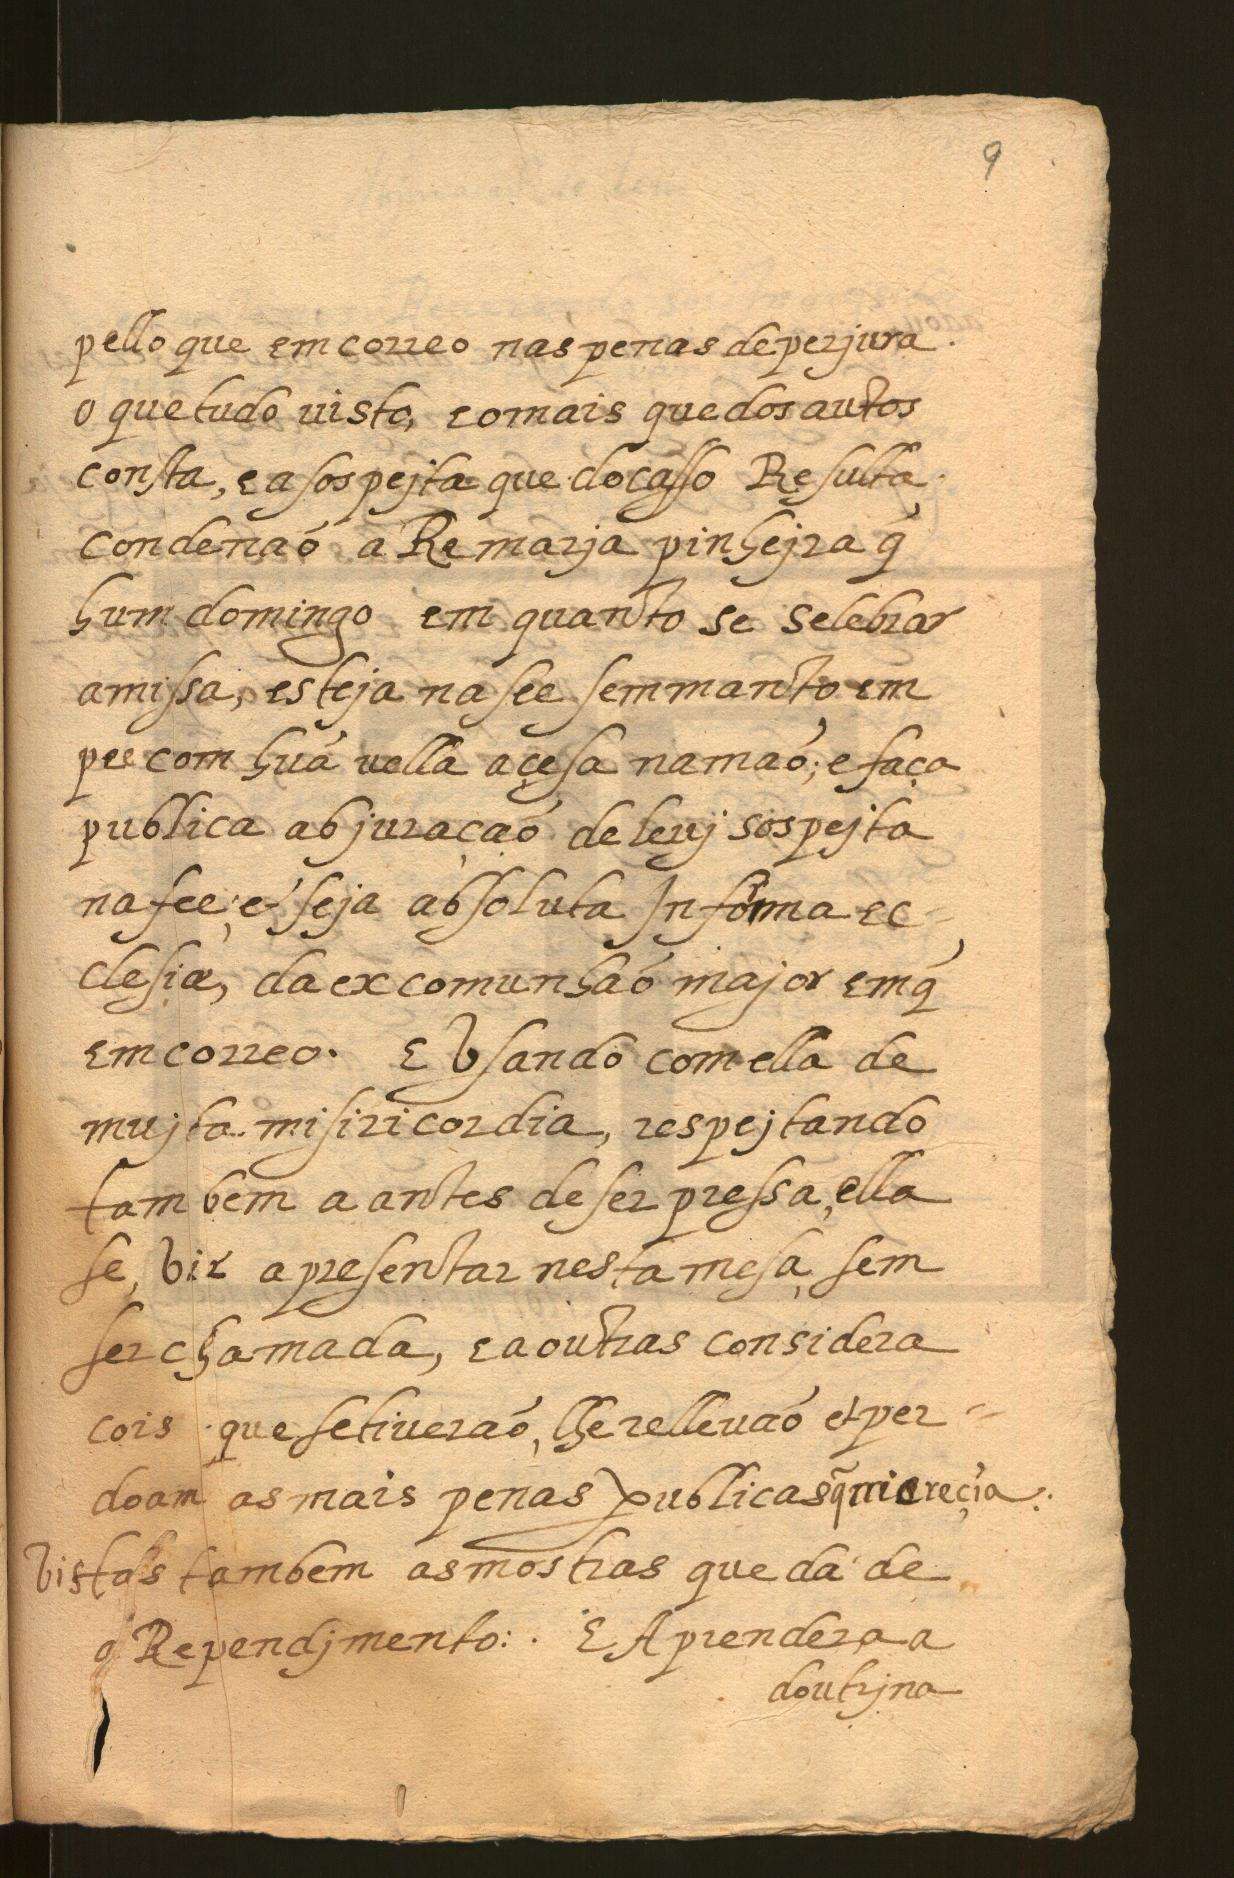 9
pello que emcorreo nas penas de perjura.
o que tudo uisto, e o mais que dos autos
consta, e a sospejta que do casso Resulta.
condenaõ a Re marja pinhejra q̃
hum domingo em quanto se selebrar
a missa, esteja na see sem manto em
pee com huã uella açesa na maõ; e faça
publica abjuraçaõ de leuj sospejta
na fee; e seja absoluta In forma ec-
clesiæ, da excomunhaõ major em q̃
emcorreo. E Vsando com ella de
mujta misiricordia, respejtando
tambem a antes de ser pressa, ella
se vir apresentar nesta mesa, sem
ser chamada, e a outras considera
cois que se tiueraõ, lhe relleuaõ e per-
doam as mais penas publicas q̃ mireçia.
Vistas tambem as mostras que da de
a Rependjmento: . E Aprendera a
doutrjna